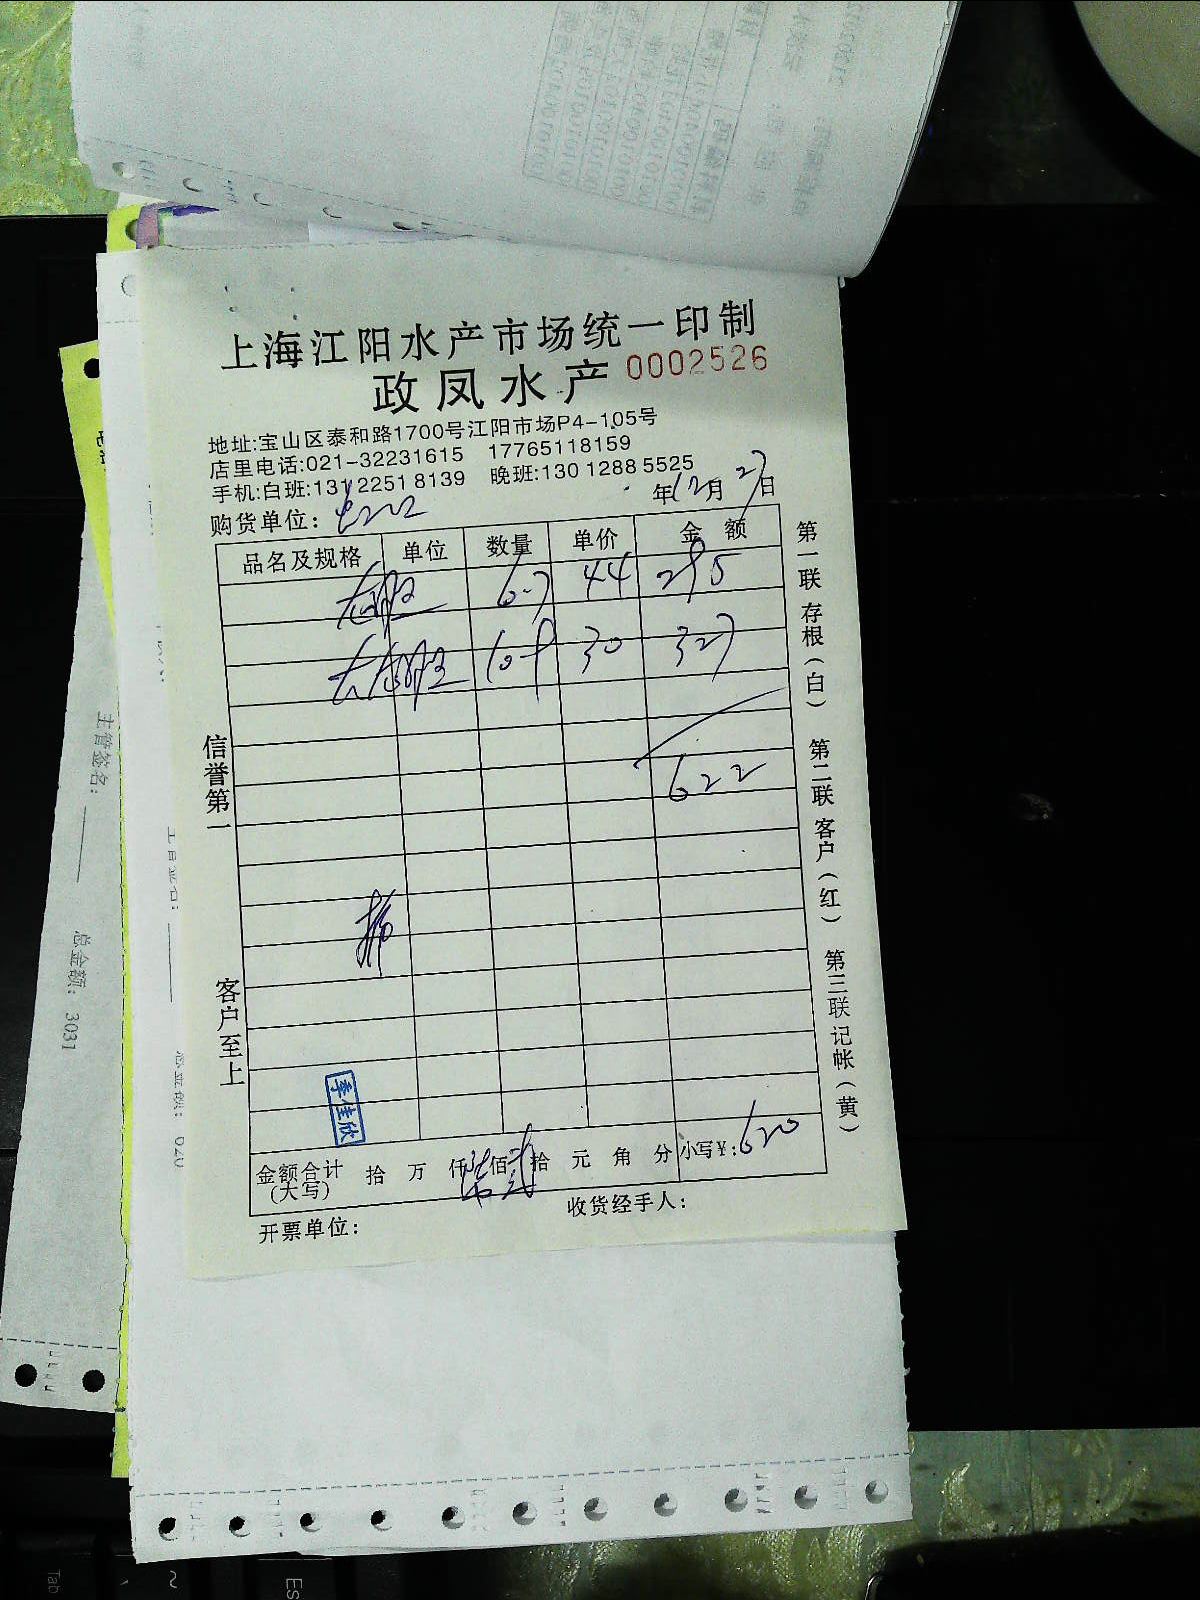 上海江阳水产市场统一印制
政凤水产 0002526
地址:宝山区泰和路1700号江阳市场P4-105号
店里电话:021-32231615 17765118159
手机:白班:131 2251 8139 晚班:130 1288 5525
年12月27日
购货单位:
品名及规格 单位 数量 单价 金额
6.7 44 295
10.9 30 327
622
信誉第一
客户至上
季佳欣
金额合计(大写) 拾 万 仟 佰 拾 元 角 分 小写¥:620
开票单位: 收货经手人:
第一联 存根(白) 第二联 客户(红) 第三联 记帐(黄)
主管签名:
总金额: 3031
主管签名:
总金额: 620
Tab
~
Es